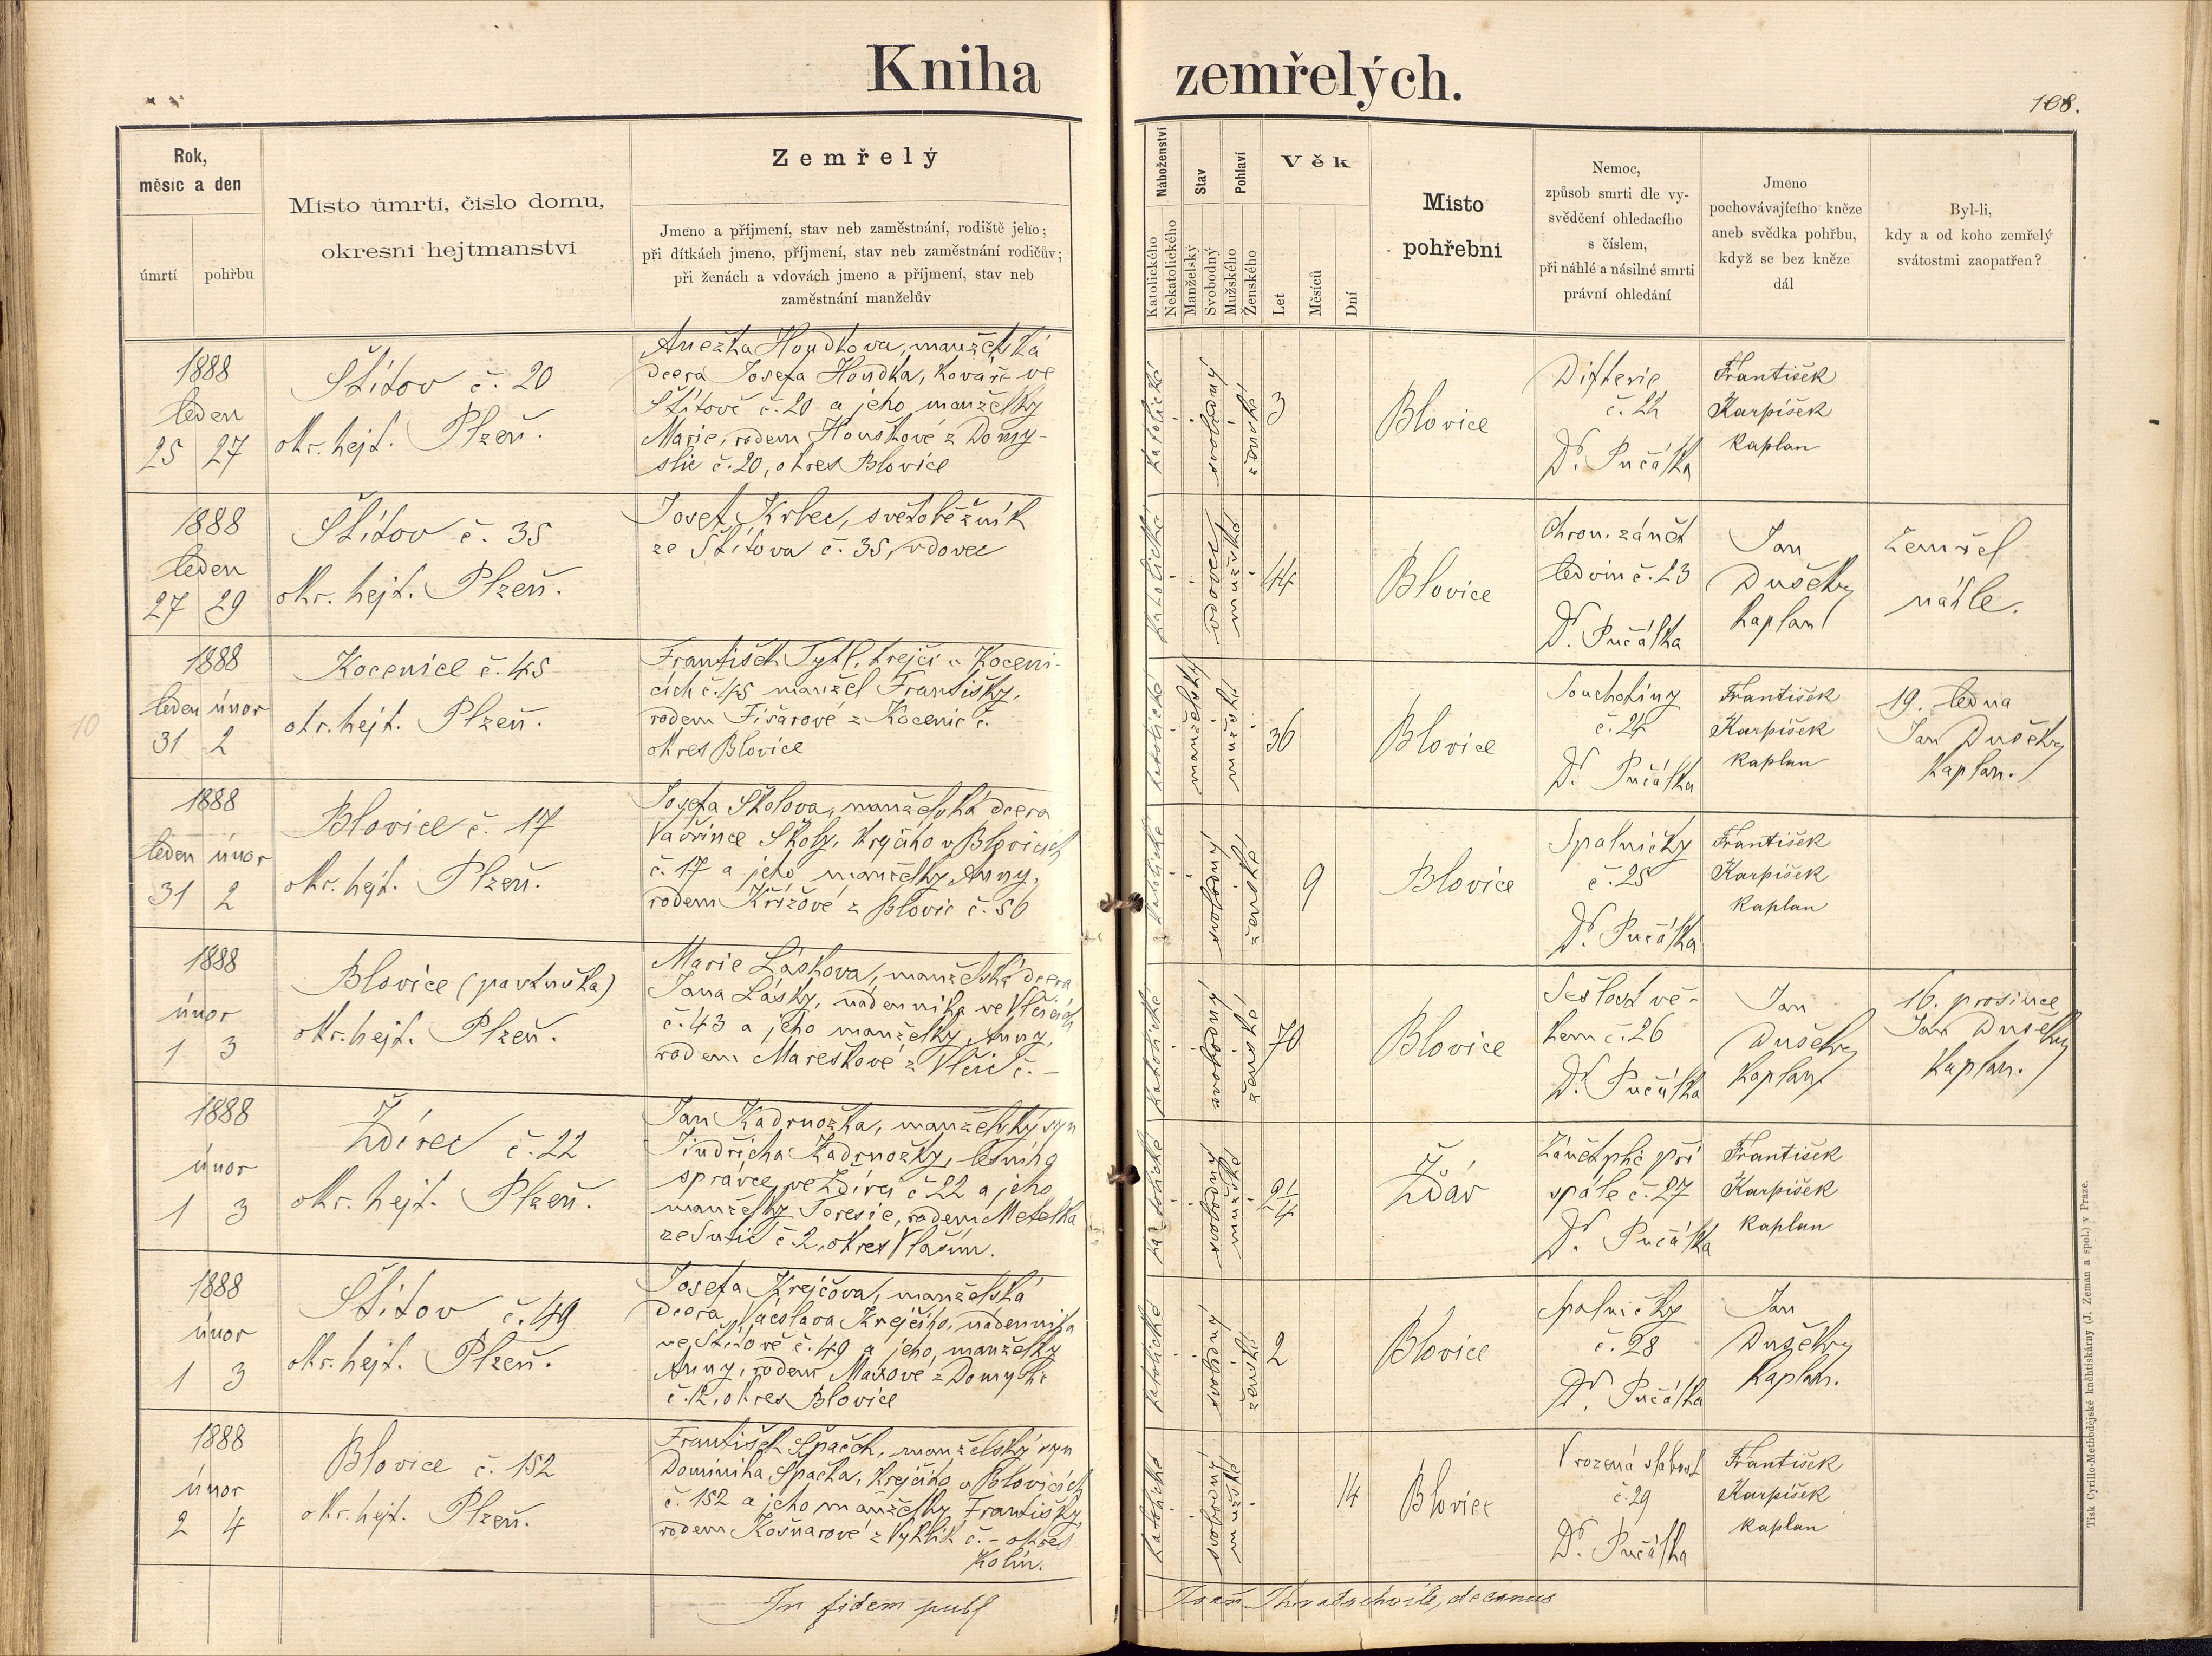 Kniha zemřelých.
108.
Rok,
měsíc a den
úmrtí pohřbu
Místo úmrtí, číslo domu,
okresní hejtmanství
Zemřelý
Jmeno a příjmení, stav neb zaměstnání, rodiště jeho;
při dítkách jmeno, příjmení, stav neb zaměstnání rodičův;
při ženách a vdovách jmeno a příjmení, stav neb
zaměstnání manželův
Náboženství
Katolického
Nekatolického
Stav
Manželský
Svobodný
Pohlaví
Mužského
Ženského
Věk
Let
Měsíců
Dní
Místo
pohřební
Nemoc,
způsob smrti dle vy-
svědčení ohledacího
s číslem,
při náhlé a násilné smrti
právní ohledání
Jmeno
pochovávajícího kněze
aneb svědka pohřbu,
když se bez kněze
dál
Byl-li,
kdy a od koho zemřelý
svátostmi zaopatřen?
1888
leden
25 27
Štítov č. 20
okr. hejt. Plzeň.
Anežka Houdkova, manželská
dcera Josefa Houdka, kováře ve
Štítově č. 20 a jeho manželky
Marie, rodem Houškové z Domy-
slic č. 20, okres Blovice
katolické
svobodný
ženské
3
Blovice
Difterie
č. 22
Dr. Pučálka
František
Karpíšek
kaplan
1888
leden
27 29
Štítov č. 35
okr. hejt. Plzeň.
Josef Krbec, světoběžník
ze Štítova č. 35, vdovec
katolické
vdovec
mužské
44
Blovice
Chron. zánět
ledvin č. 23
Dr. Pučálka
Jan
Dušek
kaplan
Zemřel
náhle.
1888
leden únor
31 2
10
Kocenice č. 45
okr. hejt. Plzeň.
František Tytl, krejčí v Koceni-
cích č. 45 manžel Františky,
rodem Fišarové z Kocenic č.
okres Blovice
katolické
manželský
mužské
36
Blovice
Souchotiny
č. 24
Dr. Pučálka
František
Karpíšek
kaplan
19. ledna
Jan
kaplan.
1888
leden únor
31 2
Blovice č. 17
okr. hejt. Plzeň.
Josefa Školova, manželská dcera
Vavřince Školy, krejčího v Blovicích
č. 17 a jeho manželky Anny,
rodem Křížové z Blovic č. 56
katolické
svobodný
ženské
9
Blovice
Spalničky
č. 25
Dr. Pučálka
František
Karpíšek
kaplan
1888
únor
1 3
Blovice (pastuška)
okr. hejt. Plzeň.
Marie Láskova, manželská dcera
Jana Lásky, nádenníka ve Vlčicích
č. 43 a jeho manželky Anny,
rodem Mareškové z Vlčic č. –
katolické
svobodný
ženské
70
Blovice
Sešlost vě-
kem č. 26
Dr. Pučálka
Jan
kaplan
16. prosince
Jan
kaplan.
1888
únor
1 3
Ždírec č. 22
okr. hejt. Plzeň.
Jan Kadrnožka, manželský syn
Jindřicha Kadrnožky, lesního
správce ve Ždírci č. 22 a jeho
manželky Teresie, rodem Metelka
č. 2, okres Vlašim.
katolické
svobodný
mužské
2 1/4
Blovice
Ždár
Zánět plic při
spále č. 27
Dr. Pučálka
František
Karpíšek
kaplan
1888
únor
1 3
Štítov č. 49
okr. hejt. Plzeň.
Josefa Krejčova, manželská
dcera Václava Krejčího, nádenníka
ve Štítově č. 49 a jeho manželky
Anny, rodem z Domyslic
č. 12, okres Blovice
katolické
svobodný
ženské
2
Blovice
Spalničky
č. 28
Dr. Pučálka
Jan
kaplan.
1888
únor
2 4
Blovice č. 152
okr. hejt. Plzeň.
František Špaček, manželský syn
Dominika Špačka, krejčího v Blovicích
č. 152 a jeho manželky Františky,
rodem Košnarové z č. – okres
Kolín.
katolické
svobodný
mužské
14
Blovice
Vrozená slabost
č. 29
Dr. Pučálka
František
Karpíšek
kaplan
In fidem publ
decanus
Tisk Cyrillo-Methodějské knihtiskárny (J. Zeman a spol.) v Praze.